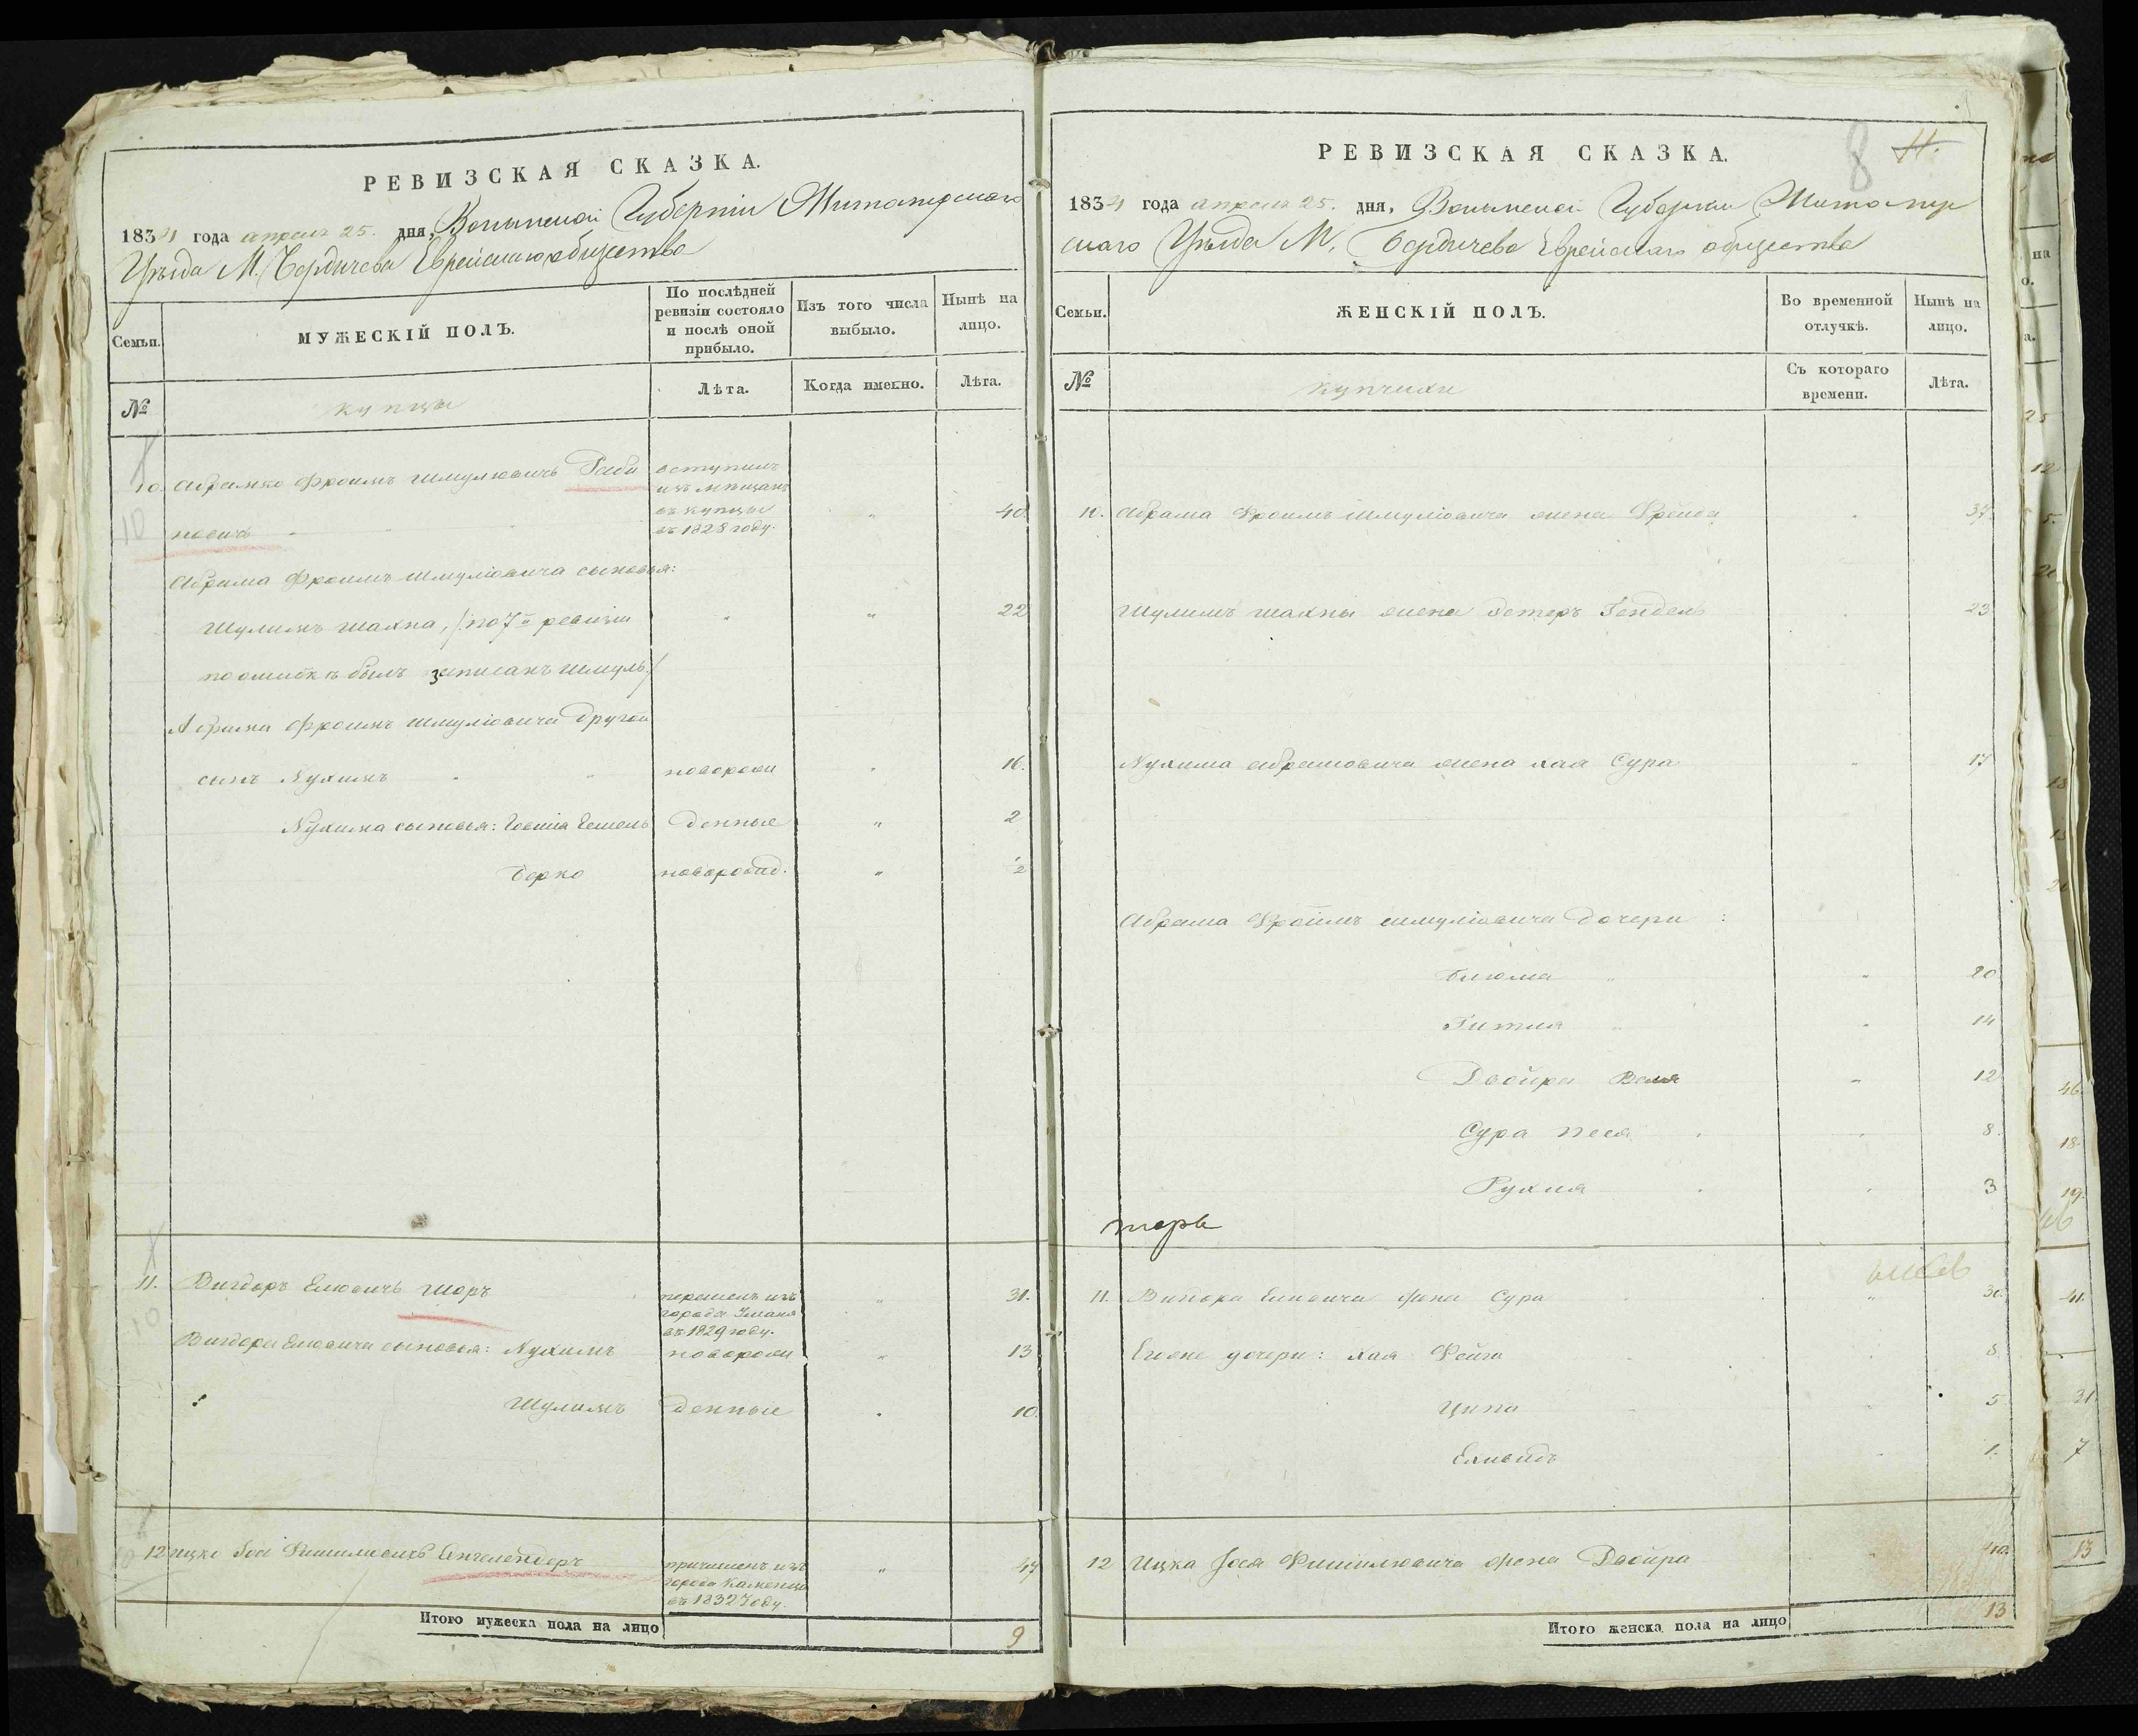 РЕВИЗСКАЯ СКАЗКА.
1834 года апреля 25. дня, Волынской Губерніи Житомирскаго
Уѣзда М. Бердичева Еврейскаго общества
Семьи.
МУЖЕСКІЙ ПОЛЪ.
По послѣдней ревизіи состояло и послѣ оной прибыло.
Изъ того числа выбыло.
Нынѣ на лицо.
№
купцы
Лѣта.
Когда именно.
Лѣта.
10. Абрамко Фроимъ Шмулювичь Раби
новичъ
вступилъ
изъ мѣщанъ
въ купцы
въ 1828 году.
" 40.
10
Абрама Фроимъ Шмуліовича сыновья:
Шулимъ Шахна, /:по 7й ревизіи " " 22
по ошибкѣ былъ записанъ Шмуль:/
Абрама Фроимъ Шмуліовича другой
сынъ Нухимъ " " новорож " 16.
Нухима сыновья: Іосиа Гешель денные " 2
Берко новорожд. " 1/2
11. Вигдоръ Елювичь Шоръ
перешелъ изъ
города Уманя
въ 1829 году.
" 31.
10
Вигдора Елювича сыновья: Нухимъ новорож " 13
Шулимъ денные " 10.
12 Ицко Іось Фишилювичъ
причисленъ изъ
города Каменца
въ 1832 году.
" 47
Итого мужеска пола на лицо
9
РЕВИЗСКАЯ СКАЗКА.
8 11.
1834 года апреля 25. дня, Волынской Губерніи Житомир
скаго Уѣзда М. Бердичева Еврейскаго общества
Семьи.
ЖЕНСКІЙ ПОЛЪ.
Во временной отлучкѣ.
Нынѣ на лицо.
№
купчихи
Съ котораго времени.
Лѣта.
10. Абрама Фроимъ Шмуліовича жена Фрейда " 37.
Шулимъ Шахны жена Эстеръ Гендель " 23
Нухима Абрамовича жена Хая Сура " 17
Абрама Фроимъ Шмуліовича дочери :
Блюма " " 20
Гитля " " 14
Двойра Веля " 12
Сура Песя " " 8.
Рухля " " 3
11. Вигдора Елювича жена Сура " 30.
Его же дочери: Хая Фейга " 8
Ципа 5
1.
12 Ицка Іося Фишилювича жена Двойра 40.
Итого женска пола на лицо
13